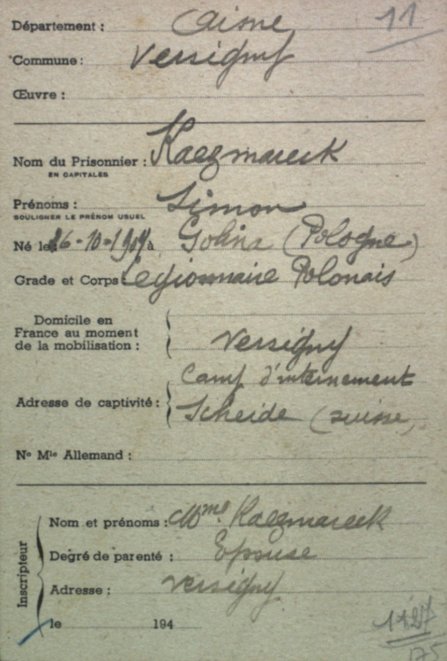 Département : Aisne 11
Commune : Versigny
Œuvre :
Nom du Prisonnier : Kaczmareck
EN CAPITALES
Prénoms : Simon
SOULIGNER LE PRÉNOM USUEL
Né le 26-10-1904 à Golina (Pologne)
Grade et Corps : Legionnaire Polonais
Domicile en
France au moment
de la mobilisation : Versigny
Camp d'internement
Adresse de captivité : Scheide (suisse)
N° Mle Allemand :
Inscripteur
Nom et prénoms : Mme Kaczmareck
Degré de parenté : Epouse
Adresse : Versigny
le 194
1127